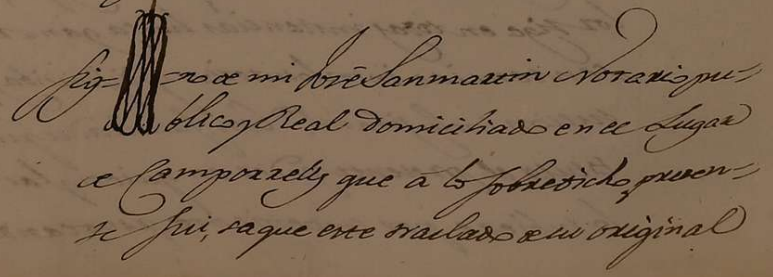 Sig= =no de mi José Sanmartin Notario pu=
blico y Real domiciliado en el Lugar
de Camporrells que a lo sobredicho presen=
te fui, saque este traslado de su original